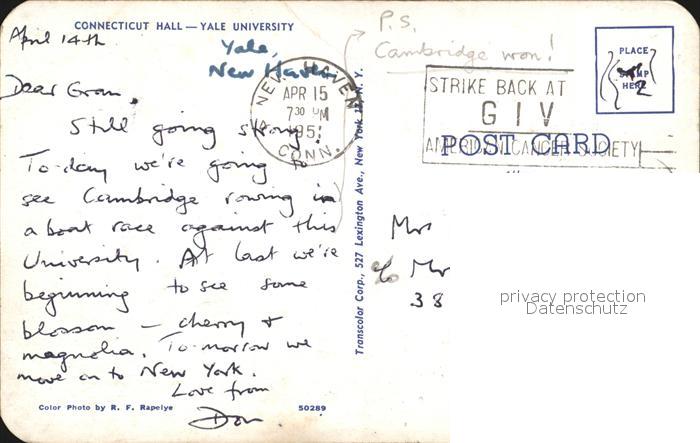 CONNECTICUT HALL — YALE UNIVERSITY
April 14th
Yale,
New Haven
P.S.
Cambridge won!
Dear Gran,
Still going strong!
To-day we're going to
see Cambridge rowing in
a boat race against this
University. At last we're
beginning to see some
blossom — cherry +
magnolia. To-morrow we
move on to New York.
Love from
Don
Color Photo by R. F. Rapelye
50289
Transcolor Corp., 527 Lexington Ave., New York 17, N. Y.
NEW HAVEN
APR 15
7 30 PM
1951
CONN.
STRIKE BACK AT
GIV
AMERICAN CANCER SOCIETY
PLACE
STAMP
HERE
POST CARD
Mrs
c/o Mr
38
privacy protection
Datenschutz